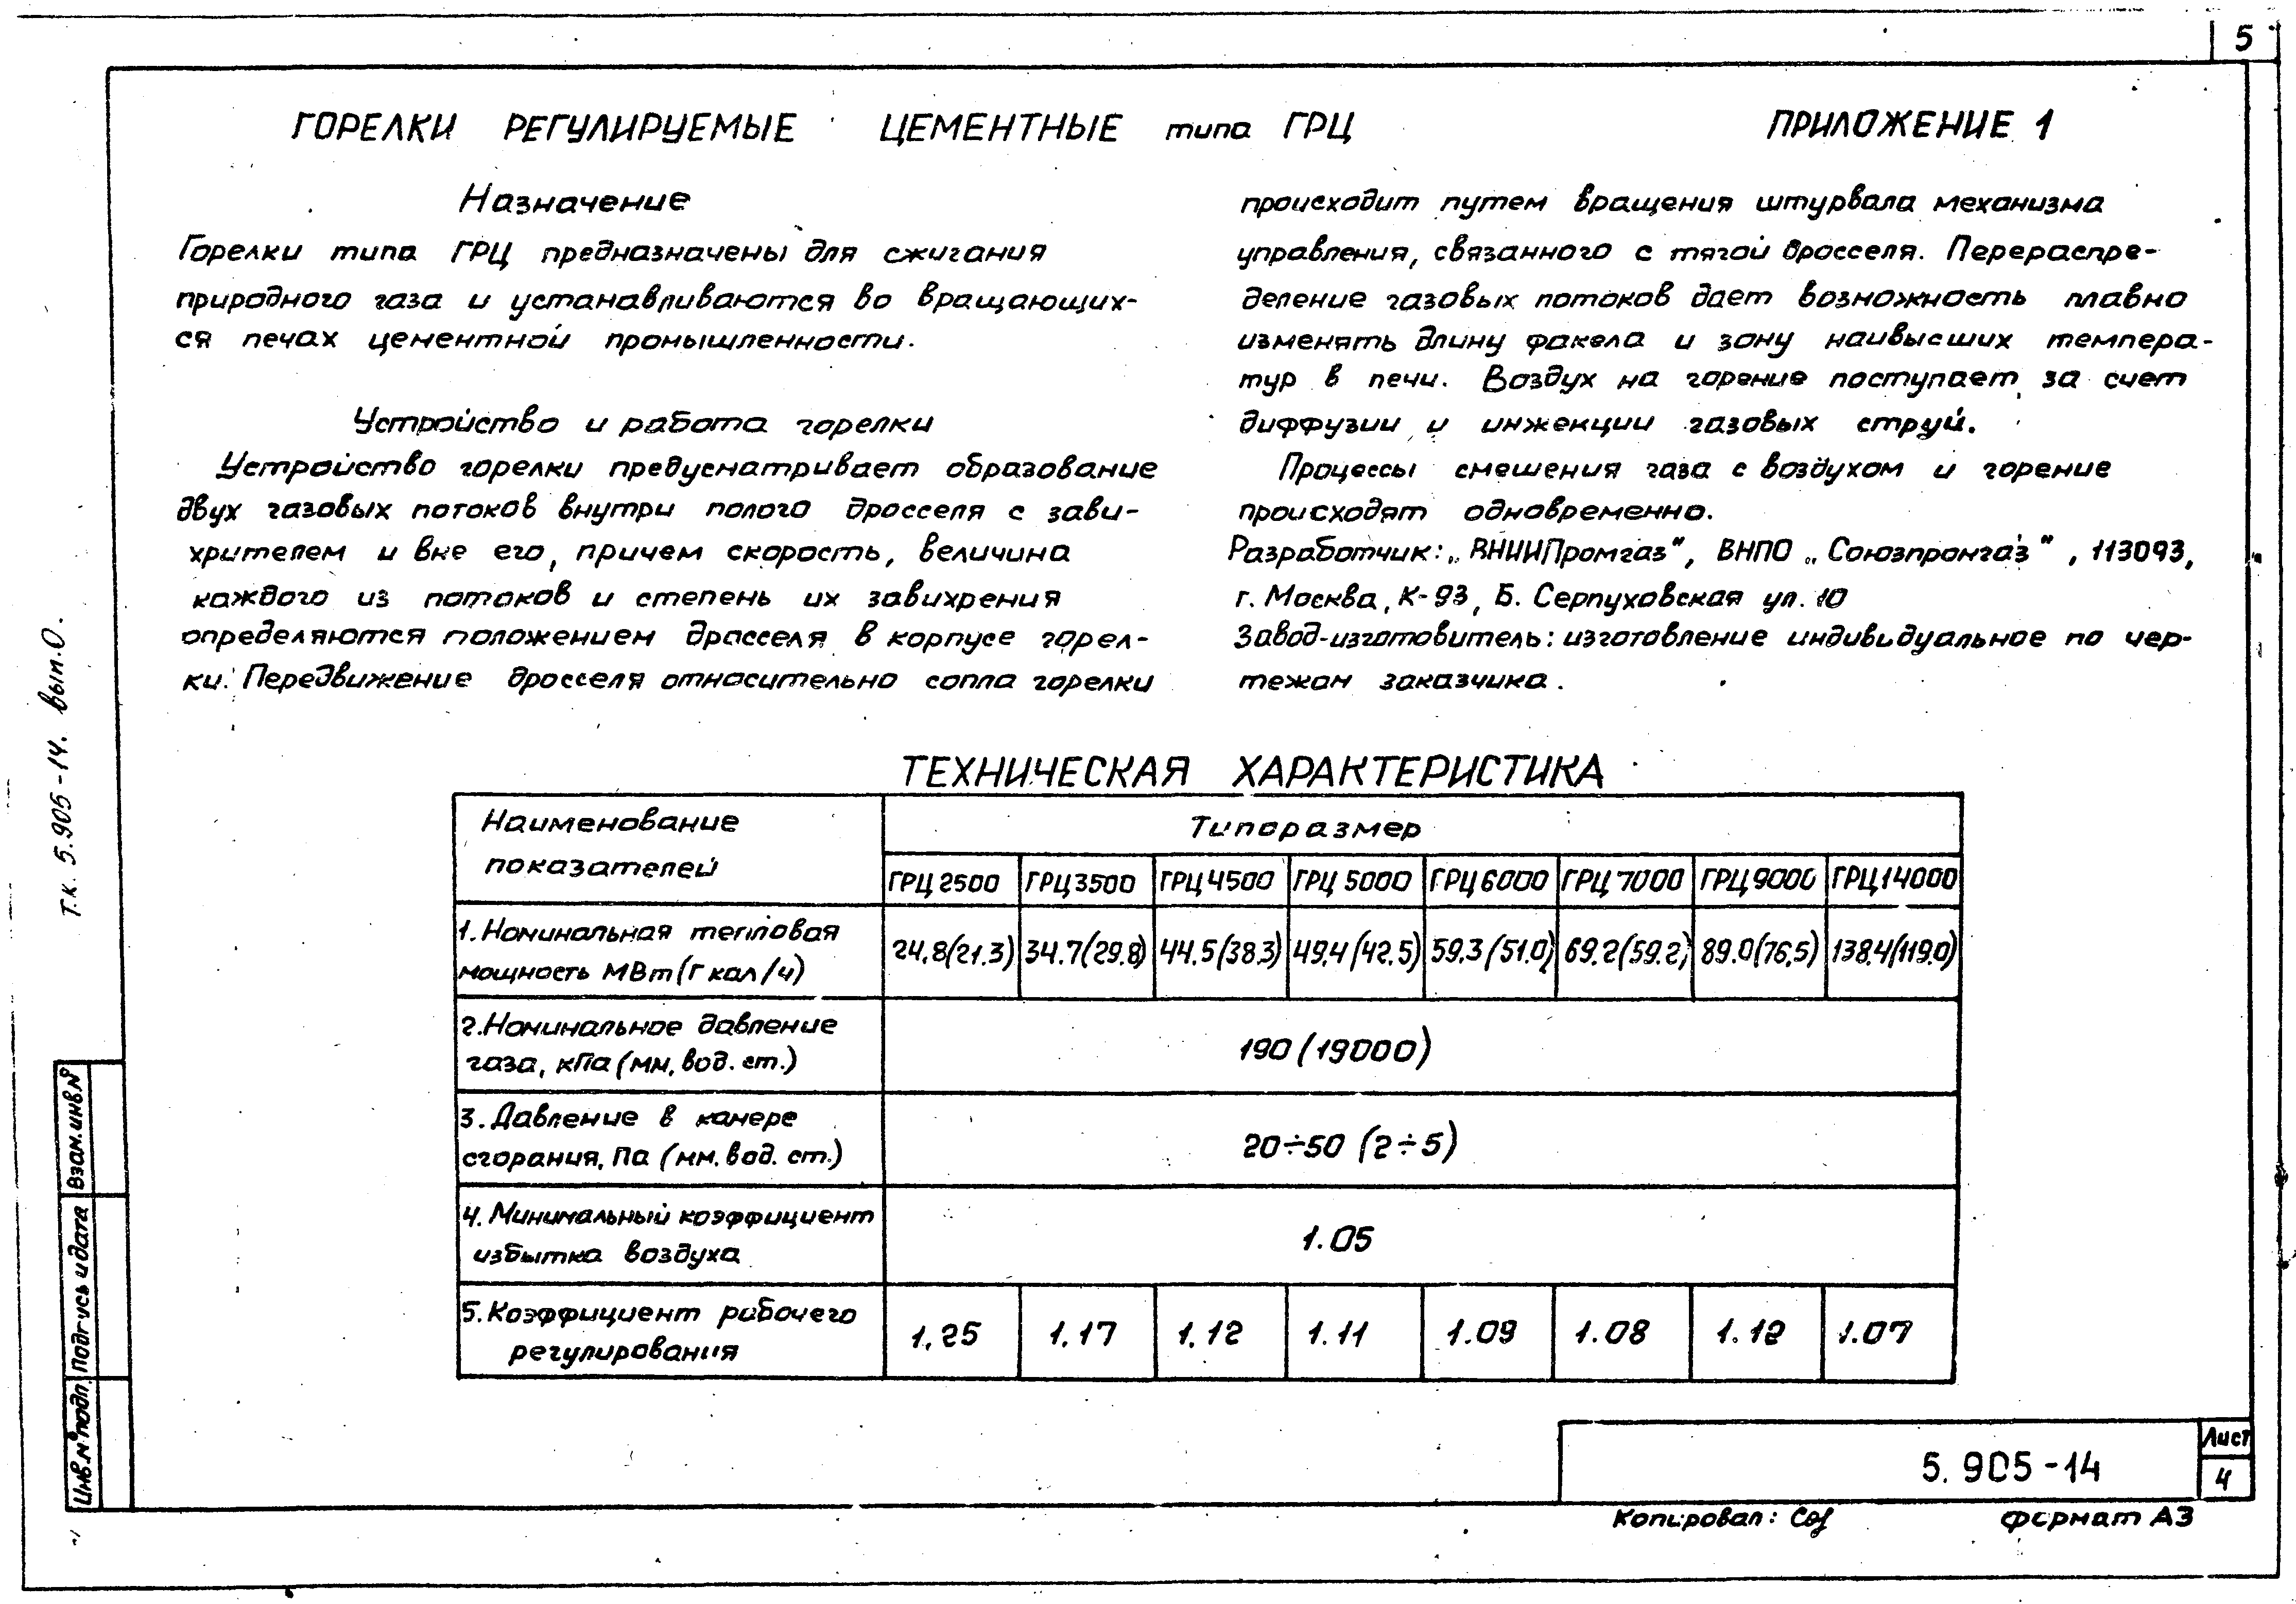 5
ГОРЕЛКИ РЕГУЛИРУЕМЫЕ ЦЕМЕНТНЫЕ типа ГРЦ
ПРИЛОЖЕНИЕ 1
Назначение
Горелки типа ГРЦ предназначены для сжигания
природного газа и устанавливаются во вращающих-
ся печах цементной промышленности.
Устройство и работа горелки
Устройство горелки предусматривает образование
двух газовых потоков внутри полого дросселя с зави-
хрителем и вне его, причем скорость, величина
каждого из потоков и степень их завихрения
определяются положением дросселя в корпусе горел-
ки. Передвижение дросселя относительно сопла горелки
происходит путем вращения штурвала механизма
управления, связанного с тягой дросселя. Перераспре-
деление газовых потоков дает возможность плавно
изменять длину факела и зону наивысших темпера-
тур в печи. Воздух на горение поступает за счет
диффузии и инжекции газовых струй.
Процессы смешения газа с воздухом и горение
происходят одновременно.
Разработчик: „ВНИИПромгаз", ВНПО „Союзпромгаз", 113093,
г. Москва, К-93, Б. Серпуховская ул. 10
Завод-изготовитель: изготовление индивидуальное по чер-
тежам заказчика.
ТЕХНИЧЕСКАЯ ХАРАКТЕРИСТИКА
Наименование
показателей
Типоразмер
ГРЦ 2500 ГРЦ 3500 ГРЦ 4500 ГРЦ 5000 ГРЦ 6000 ГРЦ 7000 ГРЦ 9000 ГРЦ 14000
1. Номинальная тепловая
мощность МВт (Гкал/ч)
24.8(21.3) 34.7(29.8) 44.5(38.3) 49.4(42.5) 59.3(51.0) 69.2(59.2) 89.0(76.5) 138.4(119.0)
2. Номинальное давление
газа, кПа (мм. вод. ст.)
190 (19000)
3. Давление в камере
сгорания, Па (мм. вод. ст.)
20÷50 (2÷5)
4. Минимальный коэффициент
избытка воздуха
1.05
5. Коэффициент рабочего
регулирования
1,25 1,17 1,12 1.11 1.09 1.08 1.12 1.07
Т.к. 5.905-14. вып.0.
Взам.инв.№
Подпись и дата
Инв.№ подл.
5.905-14
Лист
4
Копировал:
формат А3